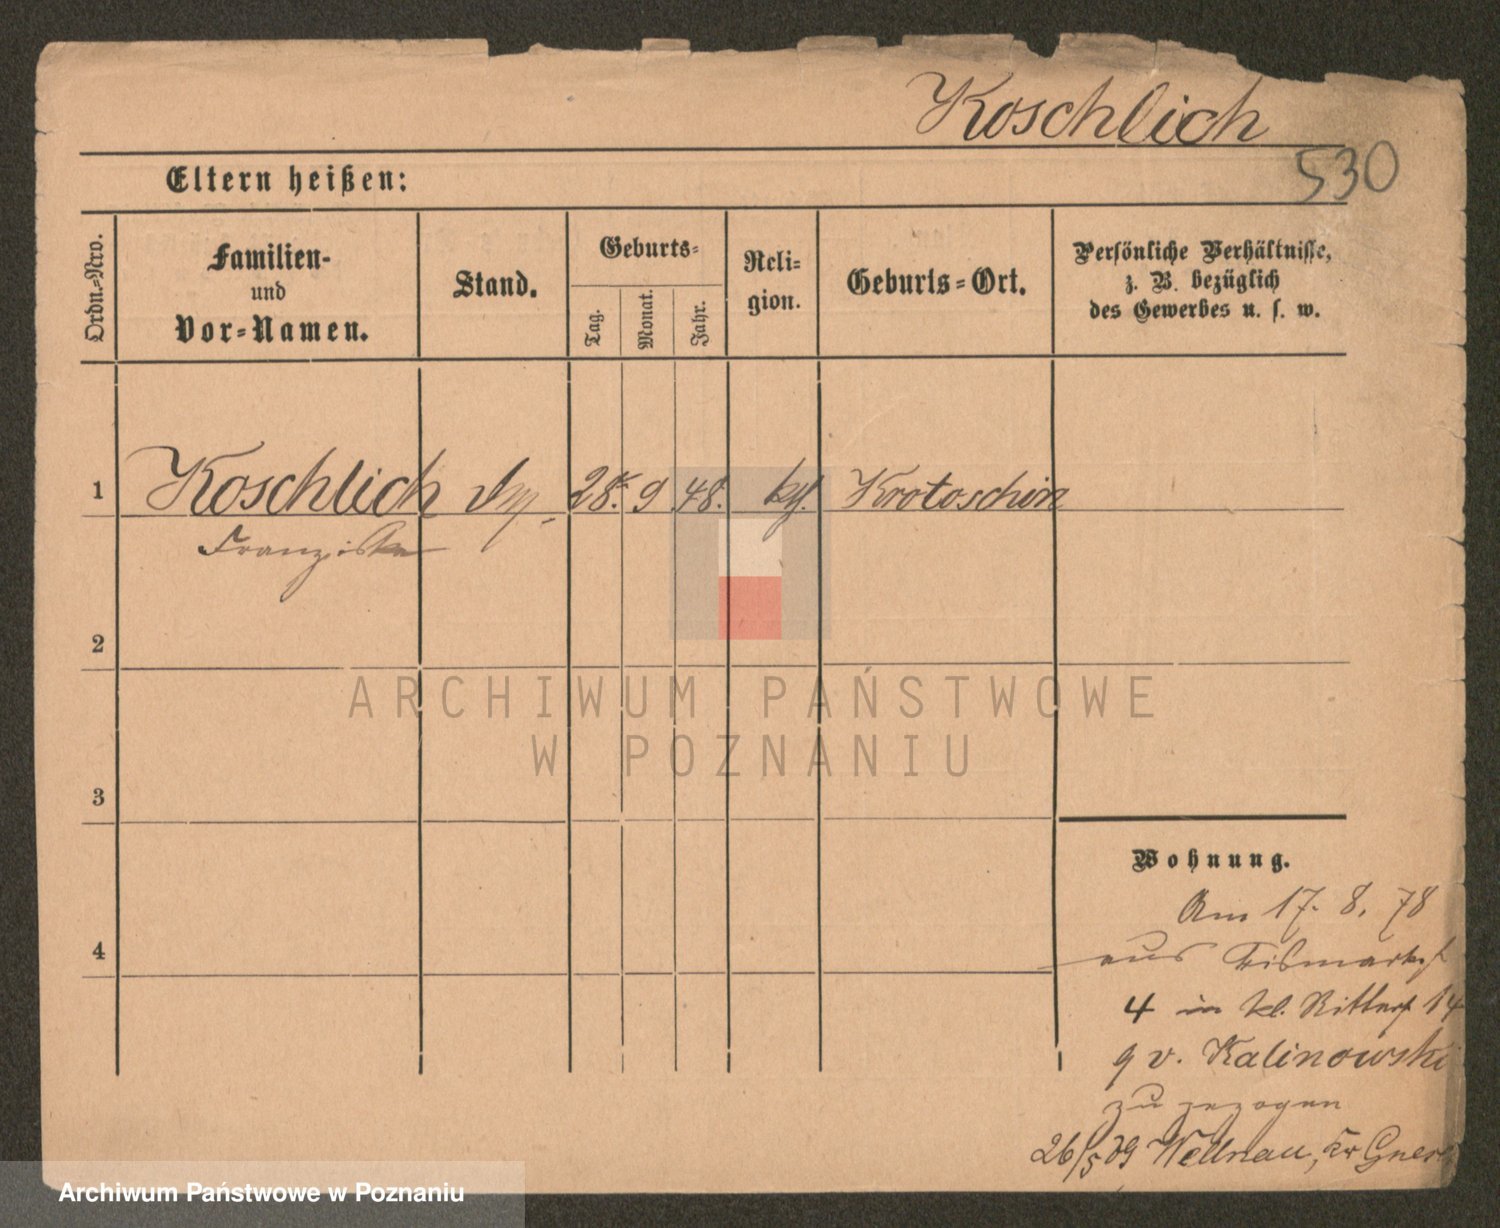 Koschlich
530
Eltern heißen:
Ordn.-Nro.
Familien-
und
Vor-Namen.
Stand.
Geburts-
Tag.
Monat.
Jahr.
Reli-
gion.
Geburts-Ort.
Persönliche Verhältnisse,
z. B. bezüglich
des Gewerbes u. s. w.
1 Koschlich 28. 9 48. Krotoschin
Franziska
2
ARCHIWUM PAŃSTWOWE
W POZNANIU
3
Wohnung.
Am 17. 8. 78
aus Bismarckst
4
4 in kl. Ritterst 14
v. Kalinowski
zu gezogen
26/5 Wellnau, Kr Gnes
Archiwum Państwowe w Poznaniu